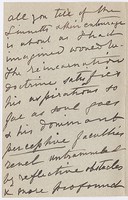 all you tell of the
entourage
is about what I had
imagined would be.
The reincarnation
doctrine satisfies
his aspirations so
far as soul goes
& his dominant
perceptive faculties
revel untrammeled
by reflective obstacles
& more profound